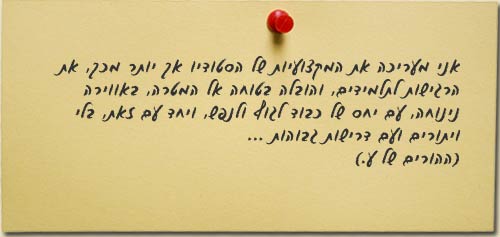 אני מעריכה את המקצועיות של הסטודיו אך יותר מכך, את
הרגישות לתלמידים, והובלה בטוחה אל המטרה, באווירה
נינוחה, עם יחס של כבוד לגוף ולנפש, ויחד עם זאת, בלי
ויתורים ועם דרישות גבוהות ...
(ההורים של ע.)